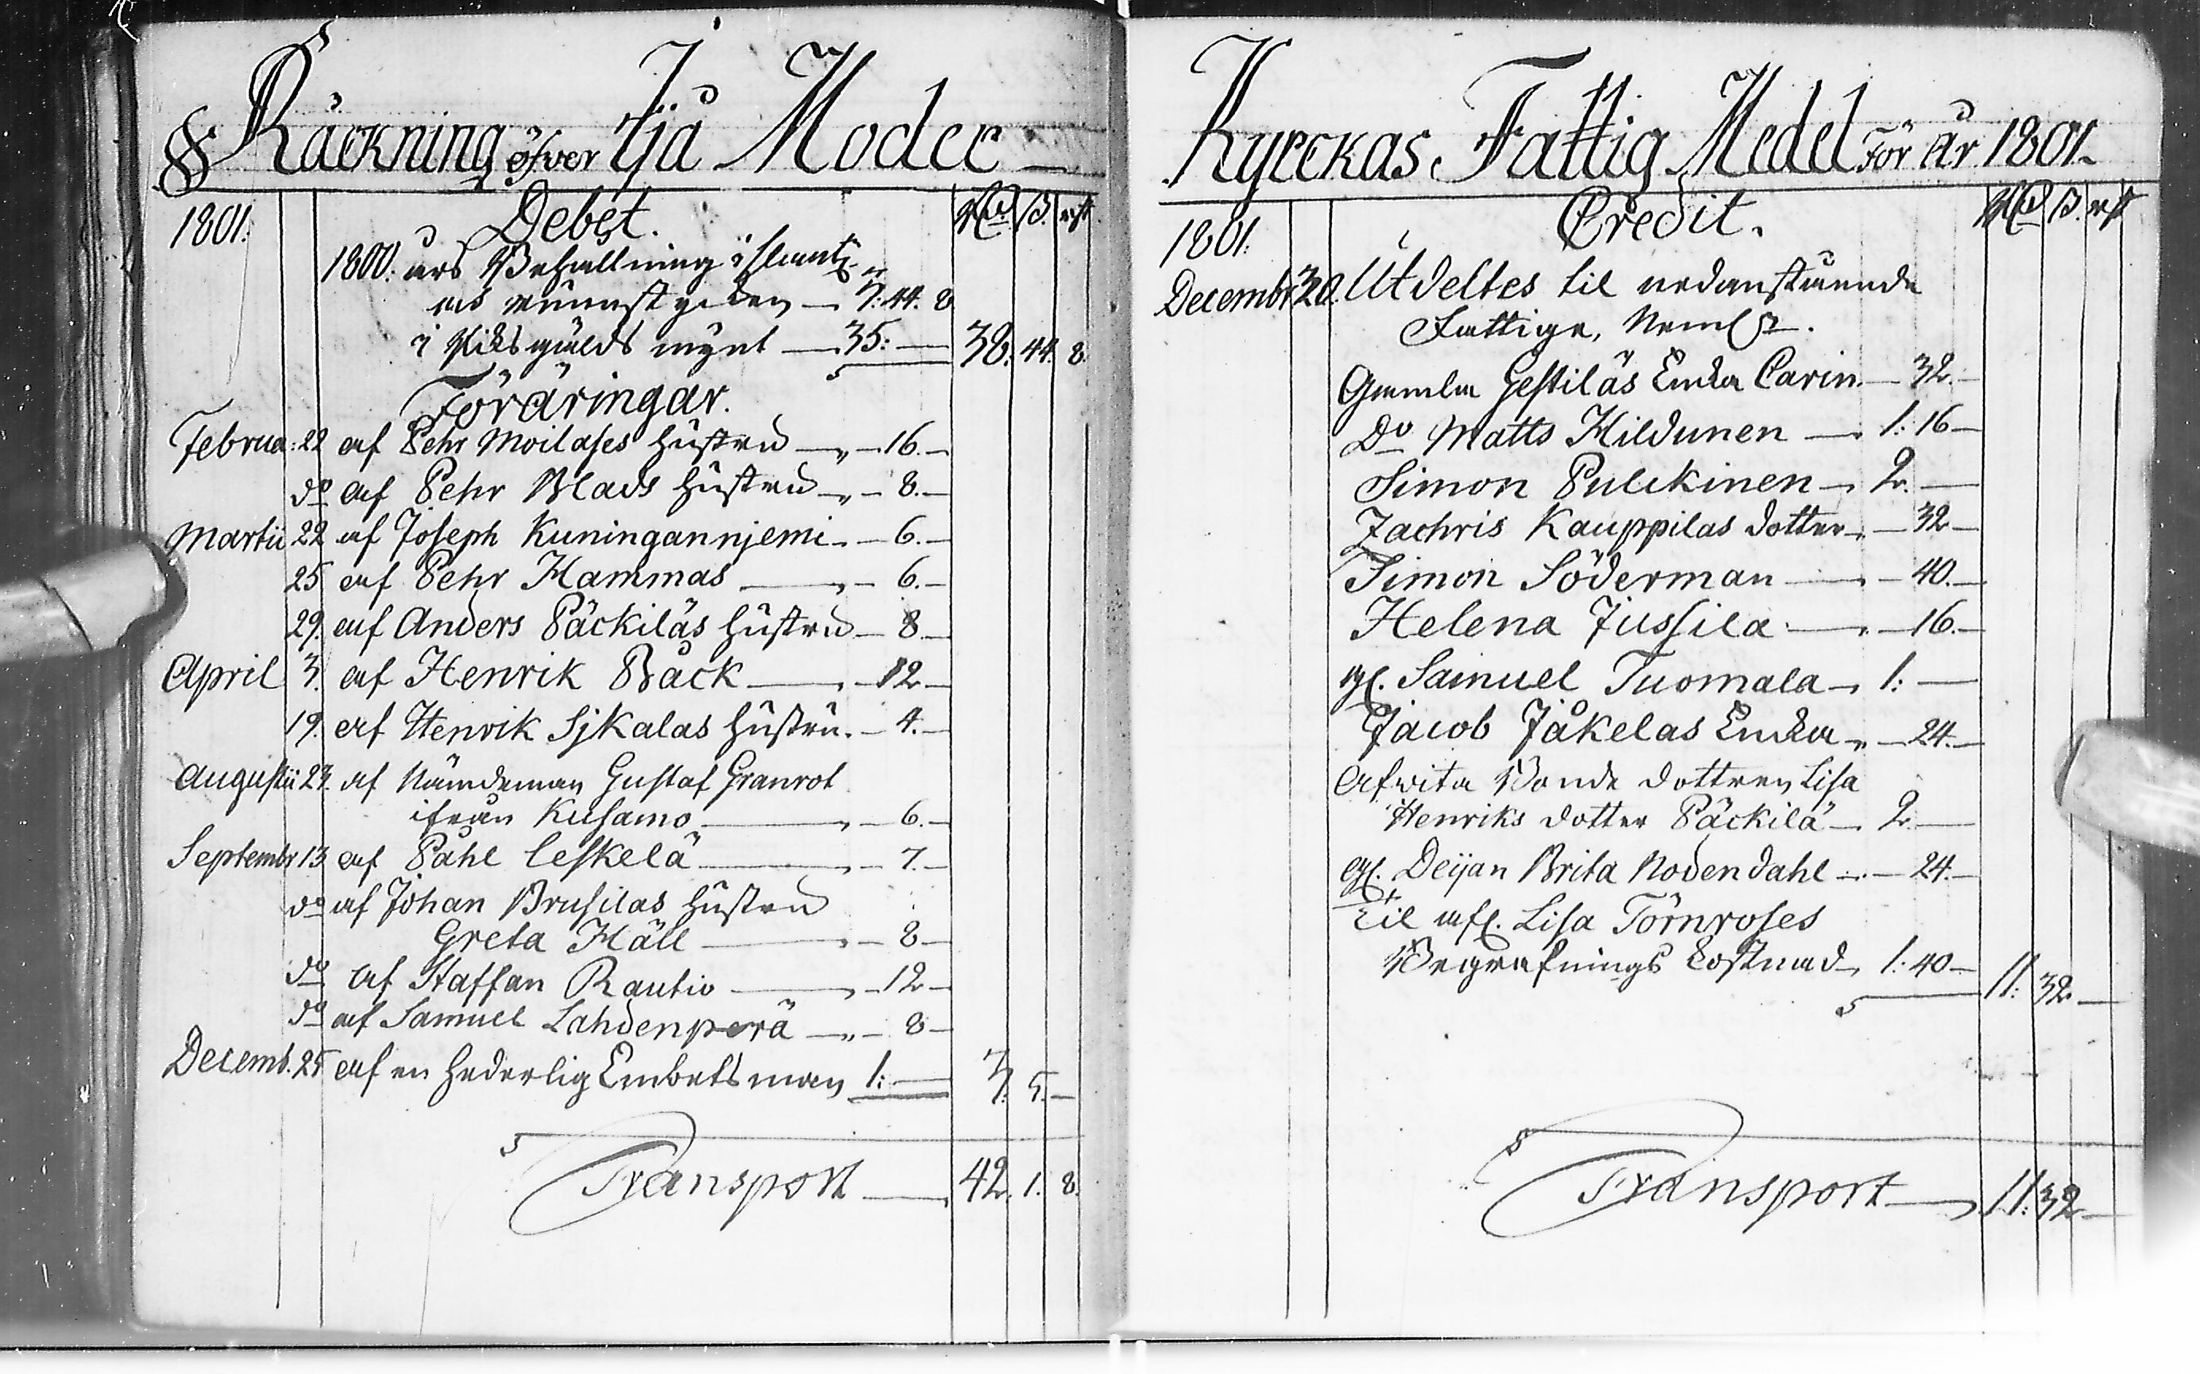 Räckning öfver Ijå Moder
Debet. Rd ß. rst
1801:
1800: års Behållning i Slantar
3: 44. 8
i Riksgälds mynt 35: — 38: 44. 8.
Föräringar.
Februa: 22 af Pehr Moilases hustru — 16. —
do af Pehr Blads hustru — 8. —
Martii 22 af Joseph Kuningannjemi — 6. —
25 af Pehr Hammas — 6. —
29. af Anders Päckiläs hustru — 8. —
April 3. af Henrik Back — 12 —
19. af Henrik Sjkalas hustru. — 4. —
Augustii 23. af Nämdeman Gustaf Granrot
ifrån Kusamo — 6. —
Septembr 13 af Påhl Leskelä — 7. —
do af Johan Brusilas hustru
Greta Häll — 8 —
do af Staffan Rautio — 12 —
do af Samuel Lahdenperä — 8 —
Decemb. 25 af en hederlig Embetsman 1: — 3. 5. —
Transport — 42. 1. 8.
Kyrckas Fattig Medel För år 1801.
Credit. Rd ß. rst
1801:
Decembr 20. Utdeltes til nedanstående
Fattige, Neml.
Gamla Gestiläs Enka Carin — 32. —
Do Matts Hildunen — 1: 16 —
Simon Pulckinen — 2. —
Zachris Kauppilas dotter — 32 —
Simon Söderman — 40. —
Helena Jussila — 16. —
gl. Samuel Tuomala — 1: —
Jacob Jåkelas Enka — 24. —
Afvita Bonde dottren Lisa
Henriks dotter Päckilä — 2 —
gl. Deijan Brita Nodendahl — 24. —
Til afl. Lisa Törnroses
Begrafnings Kostnad 1: 40 — 11: 32 —
Transport — 11: 32 —